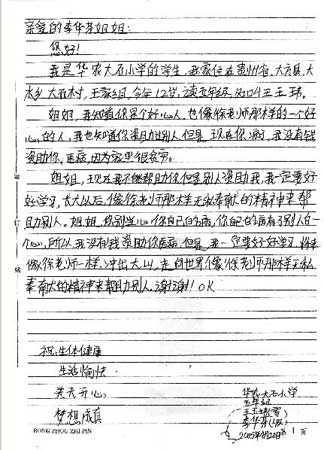 亲爱的李华芬姐姐:
您好!
我是华农大石小学的学生,我家住在贵州省,大方县,大
水乡,大石村,王家组,今年12岁,读五年级,我叫王玉琢.
姐姐,我知道你是个好心人,也像徐老师那样的一个好
心的人,我也知道你资助别人,但是,现在你病,我没有钱
资助你,医病,因为家里很贫穷。
姐姐,现在我不能帮助你但是别人资助我,我一定要好
好学习,长大以后,像徐老师那样无私奉献的精神来帮
助别人。姐姐,你别担心你自己的病,你自己的病有别人的
心,所以我没有钱资助你医病,但是,我一定要好好学习,将来
像徐老师一样,冲出大山,走向世界像徐老师那样无私
奉献的精神来帮助别人,谢谢!OK
祝:身体健康
生活愉快.
天天开心
梦想成真
华农大石小学
五年级
王玉琢
2005年4月21日
RONG ZHOU ZHI PIN
第 1 页